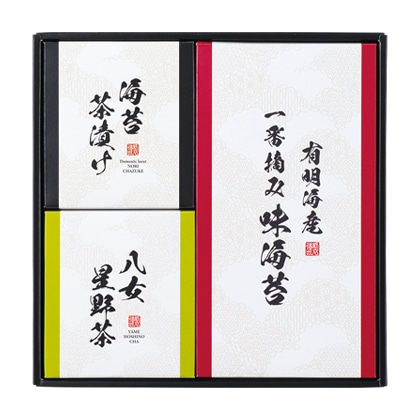 有明海産
一番摘み味海苔
海苔
茶漬け
Domestic laver
NORI
CHAZUKE
八女
星野茶
YAME
HOSHINO
CHA